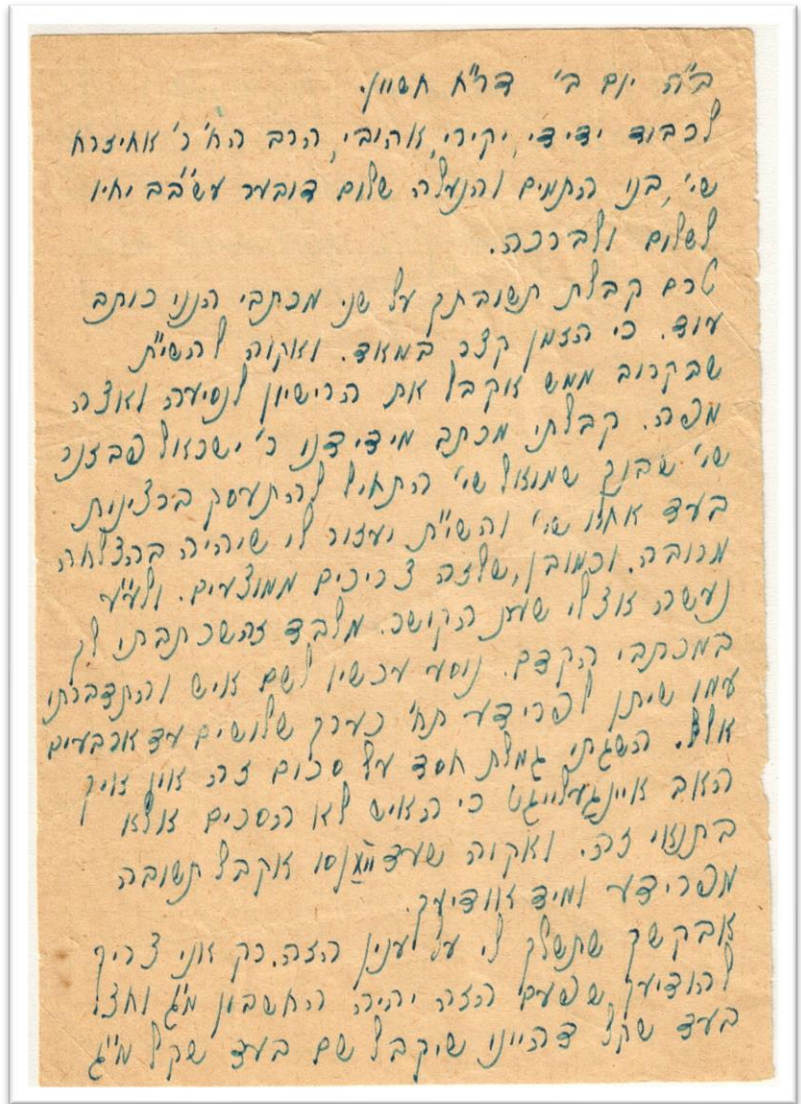 ב"ה יום ב' דר"ח חשון.
לכבוד ידידי, יקירי, אהובי, הרב הח' ר' אחיעזרא
שי', בני התמים והנעלה שלום דובער עש"בב יחיו
לשלום ולברכה.
טרם קבלת תשובתך על שני מכתבי הנני כותב
עוד. כי הזמן קצר במאד. ואקוה להשי"ת
שבקרוב ממש אקבל את הרישיון לנסיעה ואוצה
מפה. קבלתי מכתב מידידנו ר' ישראל פבזנר
שי' שבנך שמואל שי' התחיל להתעסק ברצינות
בעד אחזו שי' והשי"ת יעזור לי שיהיה בהצלחה
מרובה. וכמובן, שלזה צריכים ממוצעים. ולע"ע
נעשה אצלי שעת הקושר. מלבד זה שכתבתי לך
במכתבי הקדם. נוסע עכשיו לשם איש והתדברתי
עמו שיתן לפרידע תח' כערך שלושים עד ארבעים
אלף. השגתי גמלת חסד על סכום זה און אויך
האב איינגעלייגט כי האיש לא הסכים אלא
בתנאי זה. ואקוה שעד נסו אקבל תשובה
מפרידע ומיד אודיעך.
אבקשך שתשלך לי על לענין הזה. רק אני צריך
להודיעך שפעם הזה יהיה החשבון מ"ג וחצי
בעד שקל דהיינו שיקבל שם בעד שקל מ"ג